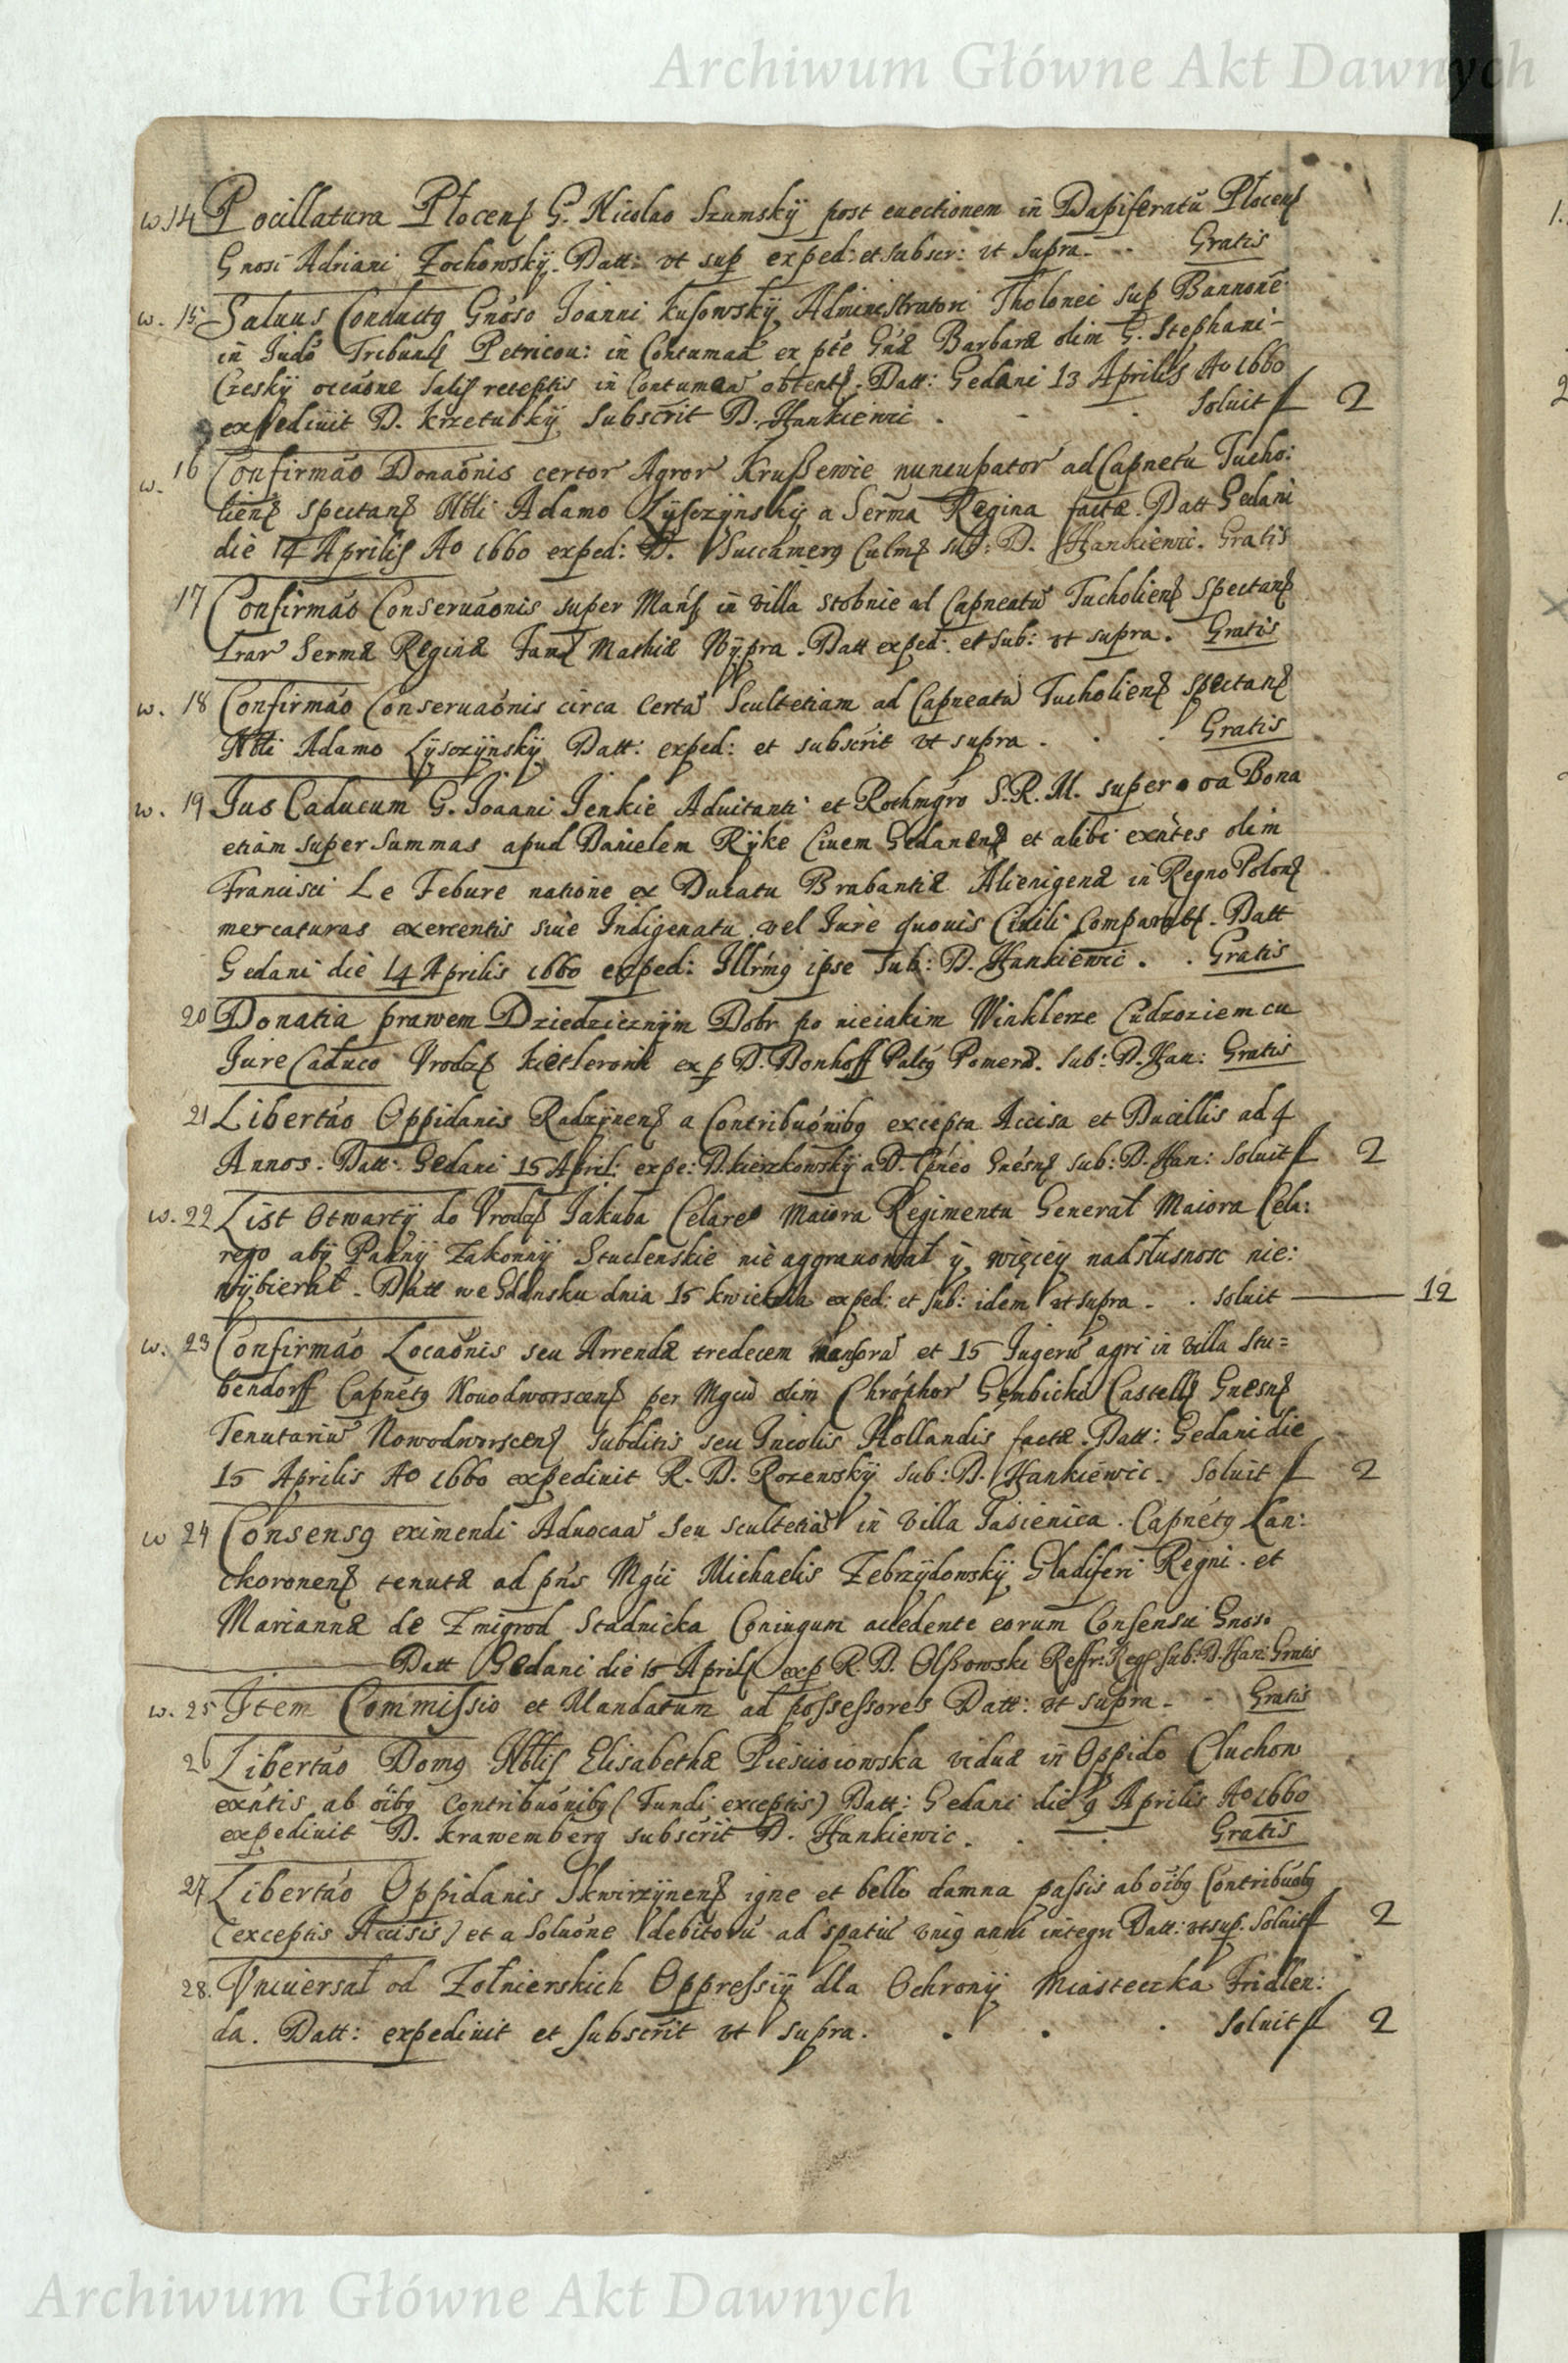 Archiwum Główne Akt Dawnych
w. 14 Pocillatura Płocens G. Nicolao Szumskÿ post euectionem in Dapiferatū Płocens
Gnosi Adriani Żochowskÿ. Datt: vt sup exped: et subscr: vt supra. Gratis
w. 15 Saluus Conductq Gnoso Joanni Kusowskÿ Administratori Tholonei sup Bannone
in Judō Tribunls Petricou: in Contumaā ex pte Gnæ Barbaræ olim G. Stephani
Czeskÿ occaōne Salis receptis in Contumaā obtent. Datt: Gedani 13 Aprilis Aō 1660
expediuit D. Krzetuskÿ Subscrit D. Hankiewic. Soluit f 2
w. 16 Confirmāo Donaōnis certor Agror Krussewie nuncupator ad Capnetū Tucho:
liens spectans Nbli Adamo Lÿsczÿnskÿ a Serma Regina factæ. Datt Gedani
die 14 Aprilis Aō 1660 exped: D. Succamerq Culms sub: D. Hankiewic. Gratis
17 Confirmāo Conseruaōnis super Mans in villa Stobnie ad Capneatū Tucholiens spectans
Lrar Sermæ Reginæ Fam Mathiæ Nÿpra. Datt exped: et sub: vt supra. Gratis
w. 18 Confirmāo Conseruaōnis circa Certā Scultetiam ad Capneatū Tucholiens spectans
Nbli Adamo Lÿsczÿnskÿ Datt: exped: et subscrit vt supra. Gratis
w. 19 Jus Caducum G. Joanni Jenkie Aduitanti et Rothmgro S.R.M. super oa Bona
etiam super Summas apud Danielem Rÿke Ciuem Gedanens et alibi exntes olim
Francisci Le Febure natione ex Ducatu Brabantiæ Alienigenæ in Regno Polons
mercaturas exercentis siue Indigenatu vel Jure quouis Ciuili Comparats. Datt
Gedani die 14 Aprilis 1660 exped: Illrmq ipse sub: D. Hankiewic. Gratis
20 Donatia prawem Dziedzicznÿm Dobr po nieiakim Winklerze Cudzoziemcu
Jure Caduco Vrodzs Kietlerowi exp D. Donhoff Paltq Pomeræ. sub: D. Han: Gratis
21 Libertāo Oppidanis Radzÿnens a Contribuōnibq excepta Accisa et Ducillis ad 4
Annos. Datt: Gedani 15 April: expe: D. Kierzkowskÿ a D. Cāneo Gnesns sub: D. Han: Soluit f 2
w. 22 List Otwartÿ do Vrodzs Jakuba Celare Maiora Regimentu Generał Maiora Cela:
rego abÿ Pannÿ Zakonnÿ Studenskie nie aggrauował ÿ więcey nad słusnosc nie:
wÿbierał. Datt we Gdansku dnia 15 kwietnia exped: et sub: idem vt supra. Soluit — 12
w. 23 Confirmāo Locaōnis seu Arrendæ tredecem mansorū et 15 Jugerū agri in villa Stu=
bendorff Capnetq Nouodworscens per Mgcū olim Chrophor Gembicki Castells Gnesns
Tenutariū Nowodworscens Subditis seu Incolis Hollandis factæ. Datt: Gedani die
15 Aprilis Aō 1660 expediuit R. D. Rozewskÿ sub: D. Hankiewic. Soluit f 2
w 24 Consensq eximendi Aduocaā seu Scultetiā in Villa Jasienica. Capnetq Lan:
ckoronens tenutæ ad pns Mgci Michaelis Zebrzÿdowskÿ Gladiferi Regni et
Mariannæ de Zmigrod Stadnicka Coniugum accedente eorum Consensu Gnoso
Datt Gedani die 15 Aprils exp R. D. Olszowski Reffr: Regs sub: D. Han: Gratis
w. 25 Item Commissio et Mandatum ad possessores Datt: vt supra. Gratis
26 Libertāo Domq Nblis Elisabethæ Piesciciowska viduæ in Oppido Cluchow
exntis ab oibq Contribuōnibq (Fundi exceptis) Datt: Gedani die 9 Aprilis Aō 1660
expediuit D. Krawemberg subscrit D. Hankiewic. Gratis
27 Libertāo Oppidanis Skwirzÿnens igne et bello damna passis ab oibq Contribuōbq
(exceptis Accisis) et a Soluōne debitorū ad spatiū vniq anni integri Datt: vt sup. Soluit f 2
28. Vniuersał od Żołnierskich Oppressiÿ dla Ochronÿ Miasteczka Fridlen:
da. Datt: expediuit et subscrit vt supra. Soluit f 2
Archiwum Główne Akt Dawnych